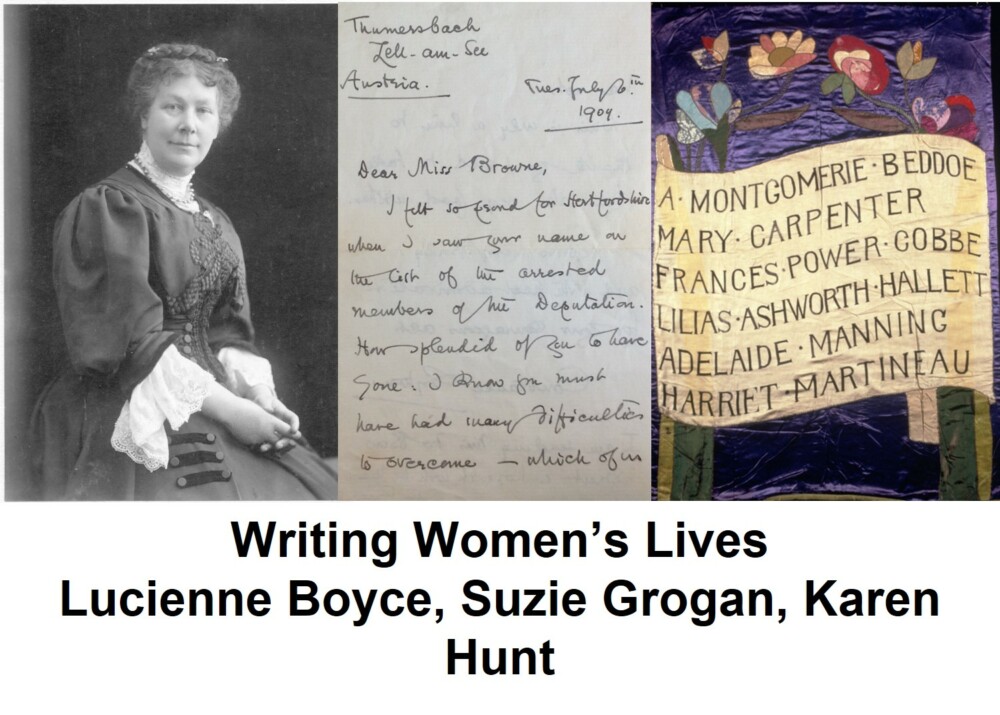 Thumersbach
Zell-am-See
Austria.
Tues. July 6th
1909.
Dear Miss Browne,
I felt so proud for Hertfordshire
when I saw your name on
the list of the arrested
members of the Deputation.
How splendid of you to have
gone. I know you must
have had many difficulties
to overcome – which of us
A· MONTGOMERIE· BEDDOE
MARY· CARPENTER
FRANCES·POWER·COBBE
LILIAS·ASHWORTH·HALLETT
ADELAIDE·MANNING
HARRIET·MARTINEAU
Writing Women’s Lives
Lucienne Boyce, Suzie Grogan, Karen
Hunt